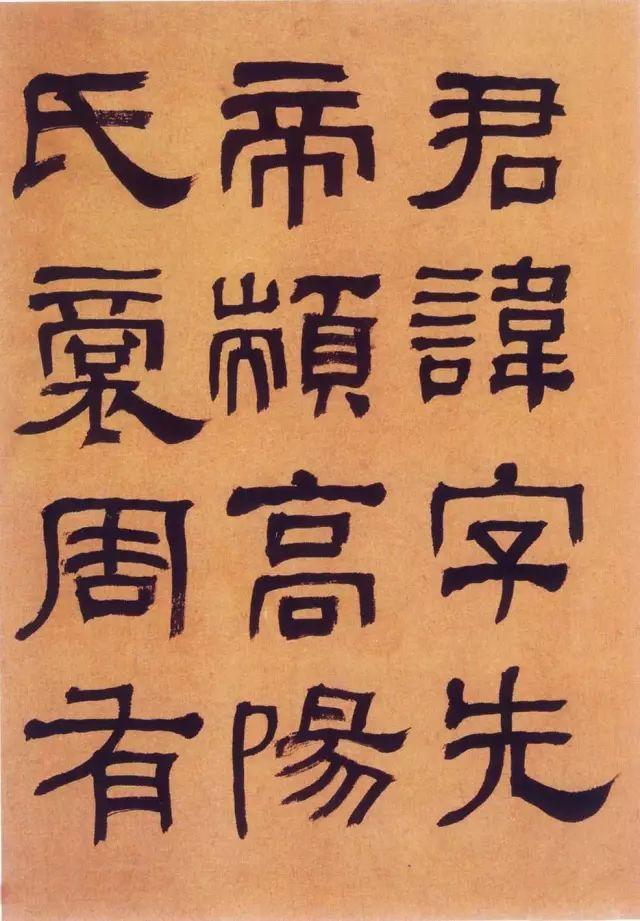 君諱字先
帝顓高陽
氏裔周有